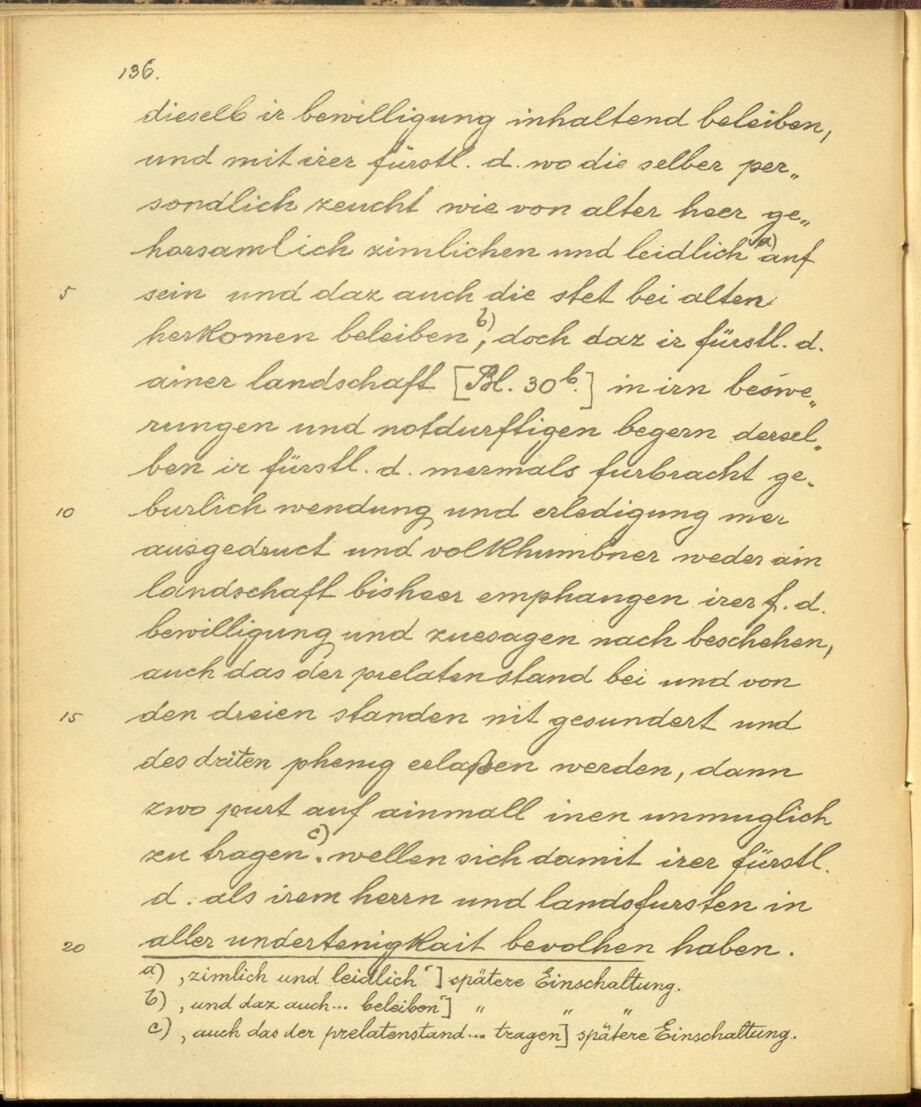 136.
dieselb ir bewilligung inhaltend beleiben,
und mit irer fürstl. d. wo die selber per„
sondlich zeucht wie von alter heer ge„
horsamlich zimlichen und leidlich a) auf
5 sein und daz auch die stet bei alten
herkomen beleiben b), doch daz ir fürstl. d.
ainer landschaft [Bl. 30 b.] in irn beswe„
rungen und notdurftigen begern dersel„
ben ir fürstl. d. mermals furbracht ge„
10 burlich wendung und erledigung mer
ausgedruct und volkhumbner weder ain
landschaft bisheer emphangen irer f. d.
bewilligung und zuesagen nach beschehen,
auch das der prelatenstand bei und von
15 den dreien standen nit gesundert und
des driten phenig erlaßen werden, dann
zwo purt auf ainmall inen unmuglich
zu tragen c). wellen sich damit irer fürstl.
d. als irem herrn und landsfursten in
20 aller undertenigkait bevolhen haben.
a) ‚zimlich und leidlich‘] spätere Einschaltung.
b) ‚und daz auch... beleiben‘] „ „ „
c) ‚auch das der prelatenstand... tragen] spätere Einschaltung.